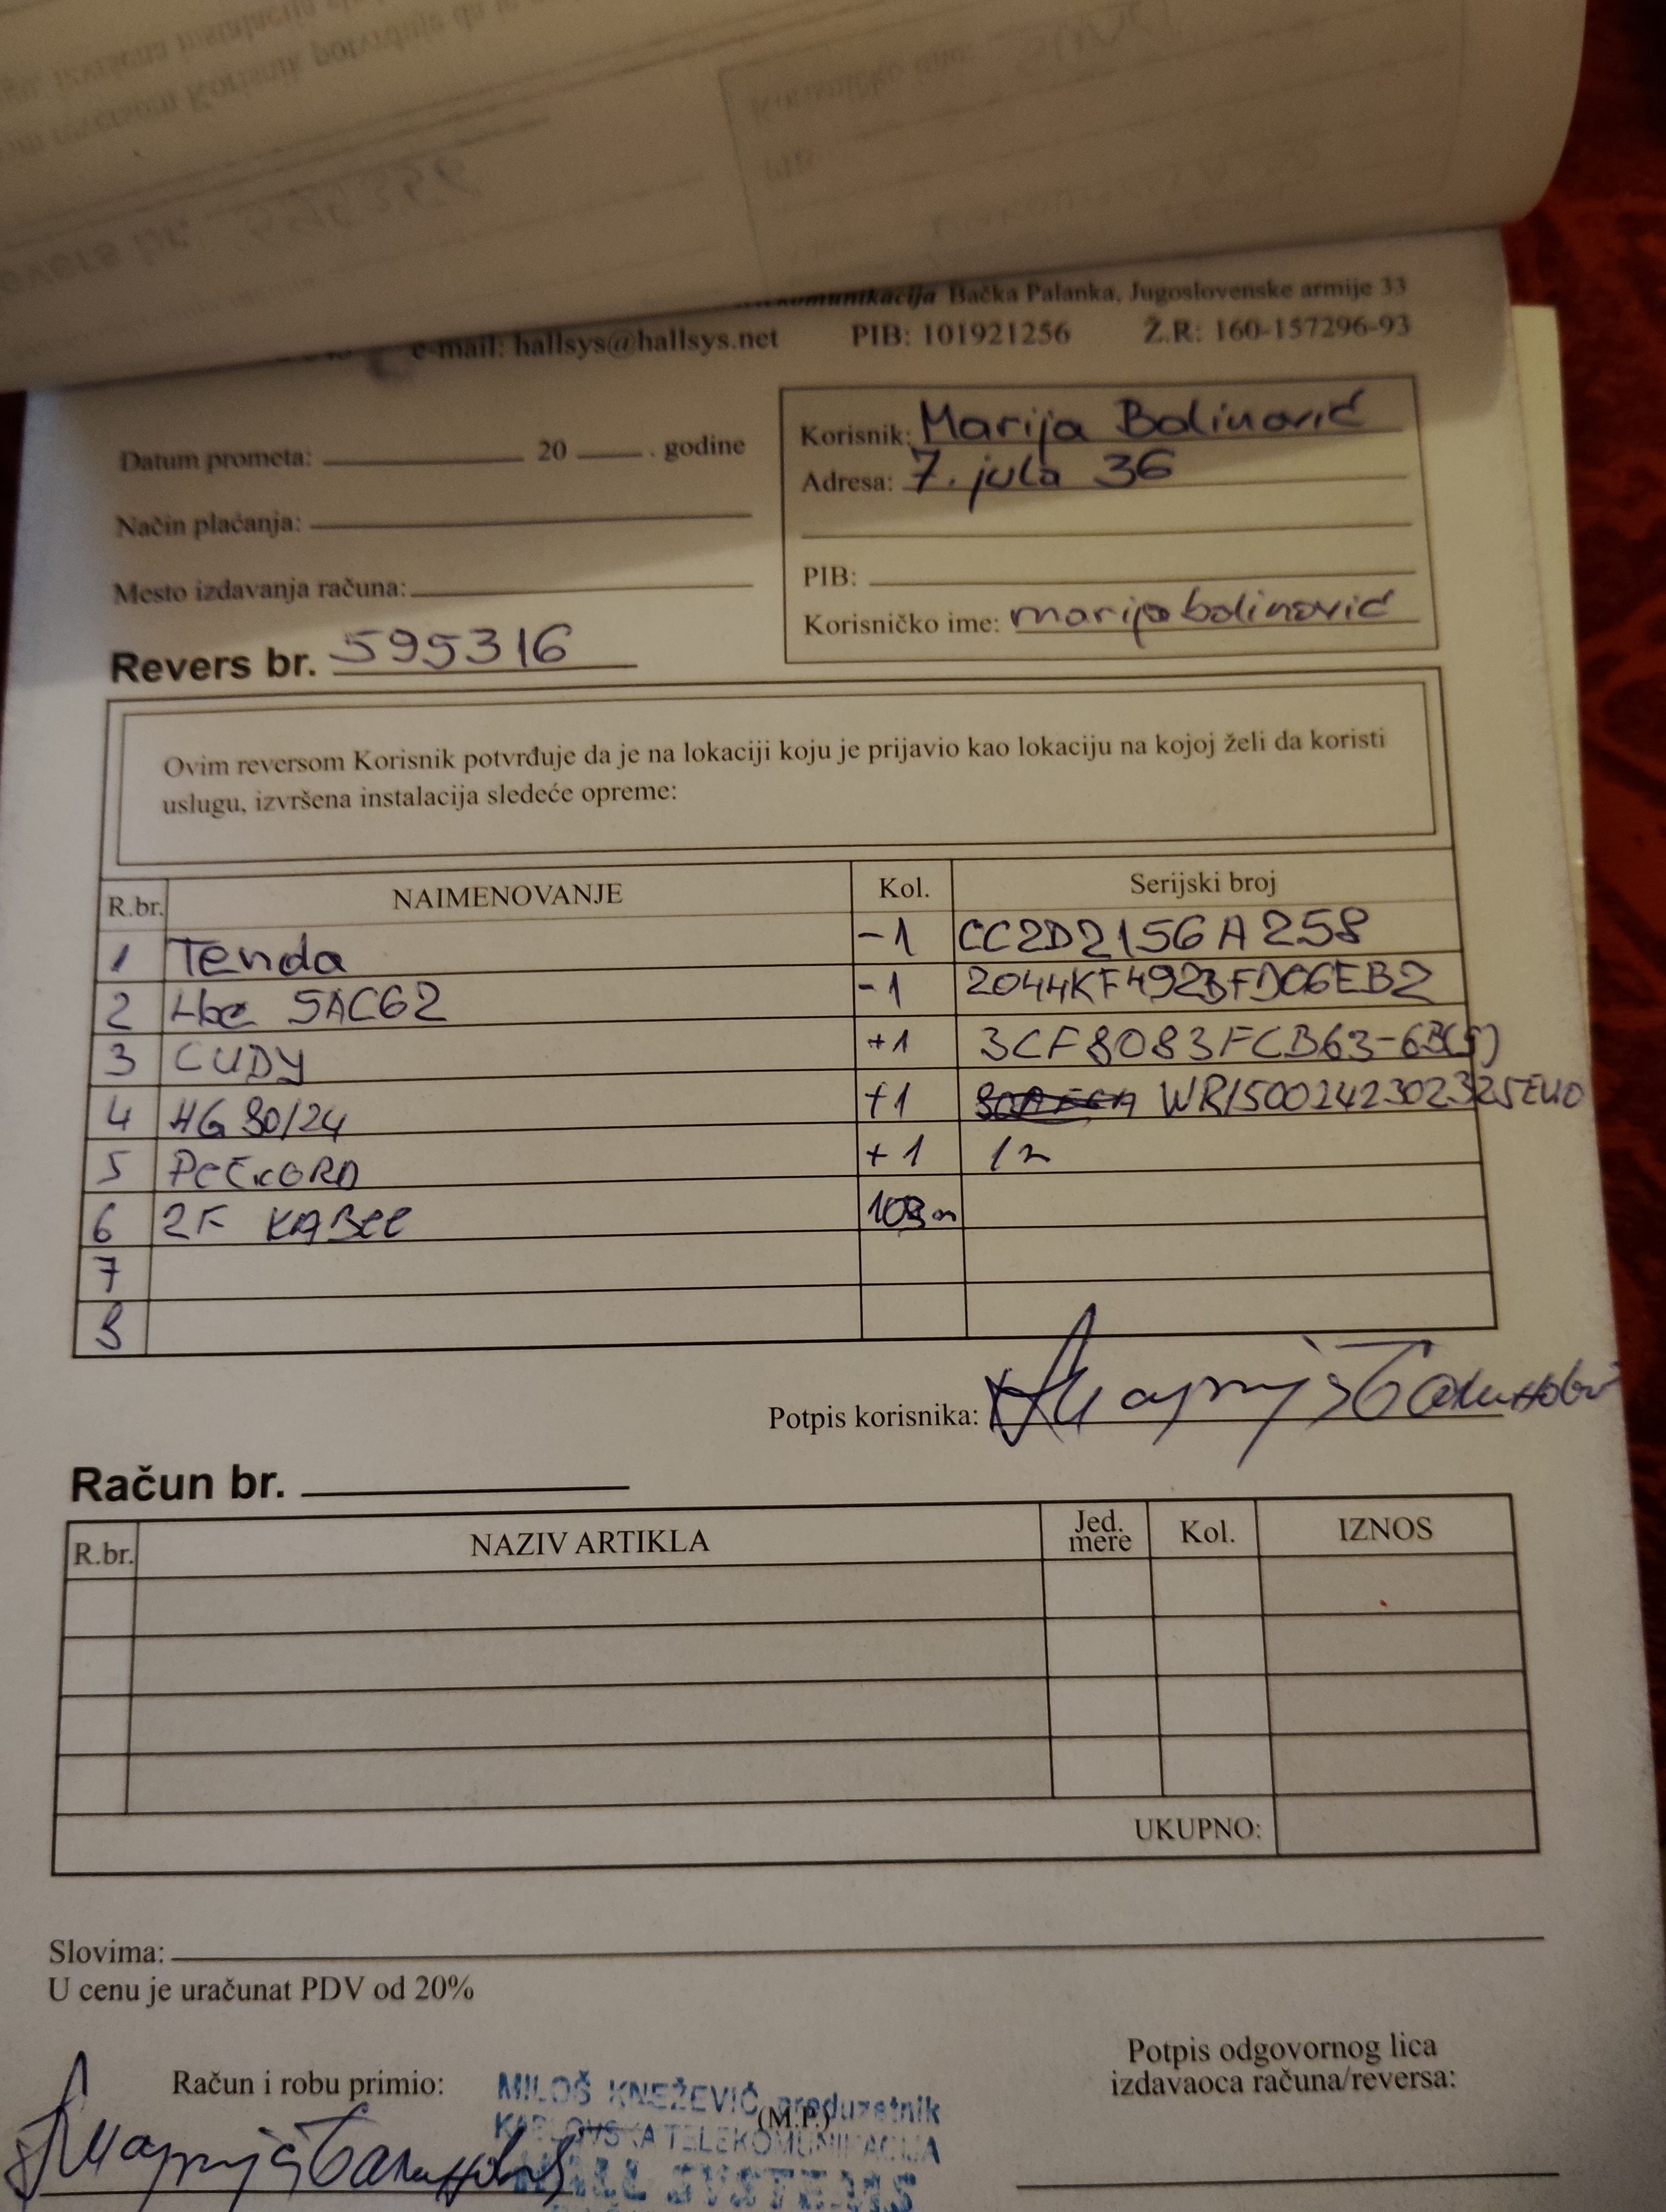 Bačka Palanka, Jugoslovenske armije 33
e-mail: hallsys@hallsys.net PIB: 101921256 Ž.R: 160-157296-93
Datum prometa: 20 . godine
Korisnik: Marija Balinović
Adresa: 7. jula 36
Način plaćanja:
Mesto izdavanja računa:
PIB:
Korisničko ime: marijabalinović
Revers br. 595316
Ovim reversom Korisnik potvrđuje da je na lokaciji koju je prijavio kao lokaciju na kojoj želi da koristi
uslugu, izvršena instalacija sledeće opreme:
R.br. NAIMENOVANJE Kol. Serijski broj
1 Tenda -1 CC2D2156A258
2 SAC62 -1 2044KF492BFD06EB2
3 CUDY +1 3CF8083FCB63-6B(5)
4 HG 80/24 +1 WR1500242302325EU0
5 +1
6 2F
7
8
Potpis korisnika:
Račun br.
R.br. NAZIV ARTIKLA Jed. mere Kol. IZNOS
UKUPNO:
Slovima:
U cenu je uračunat PDV od 20%
Račun i robu primio:
Potpis odgovornog lica
izdavaoca računa/reversa:
MILOŠ KNEŽEVIĆ preduzetnik
(M.P.)
KARLOVSKA TELEKOMUNIKACIJA
HALL SYSTEMS